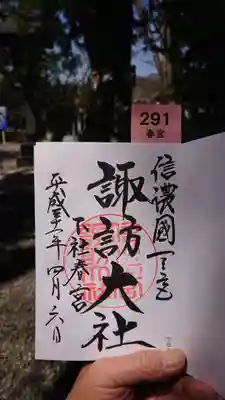 291
春宮
信濃國一之宮
諏訪大社
下社春宮
平成三十一年四月六日